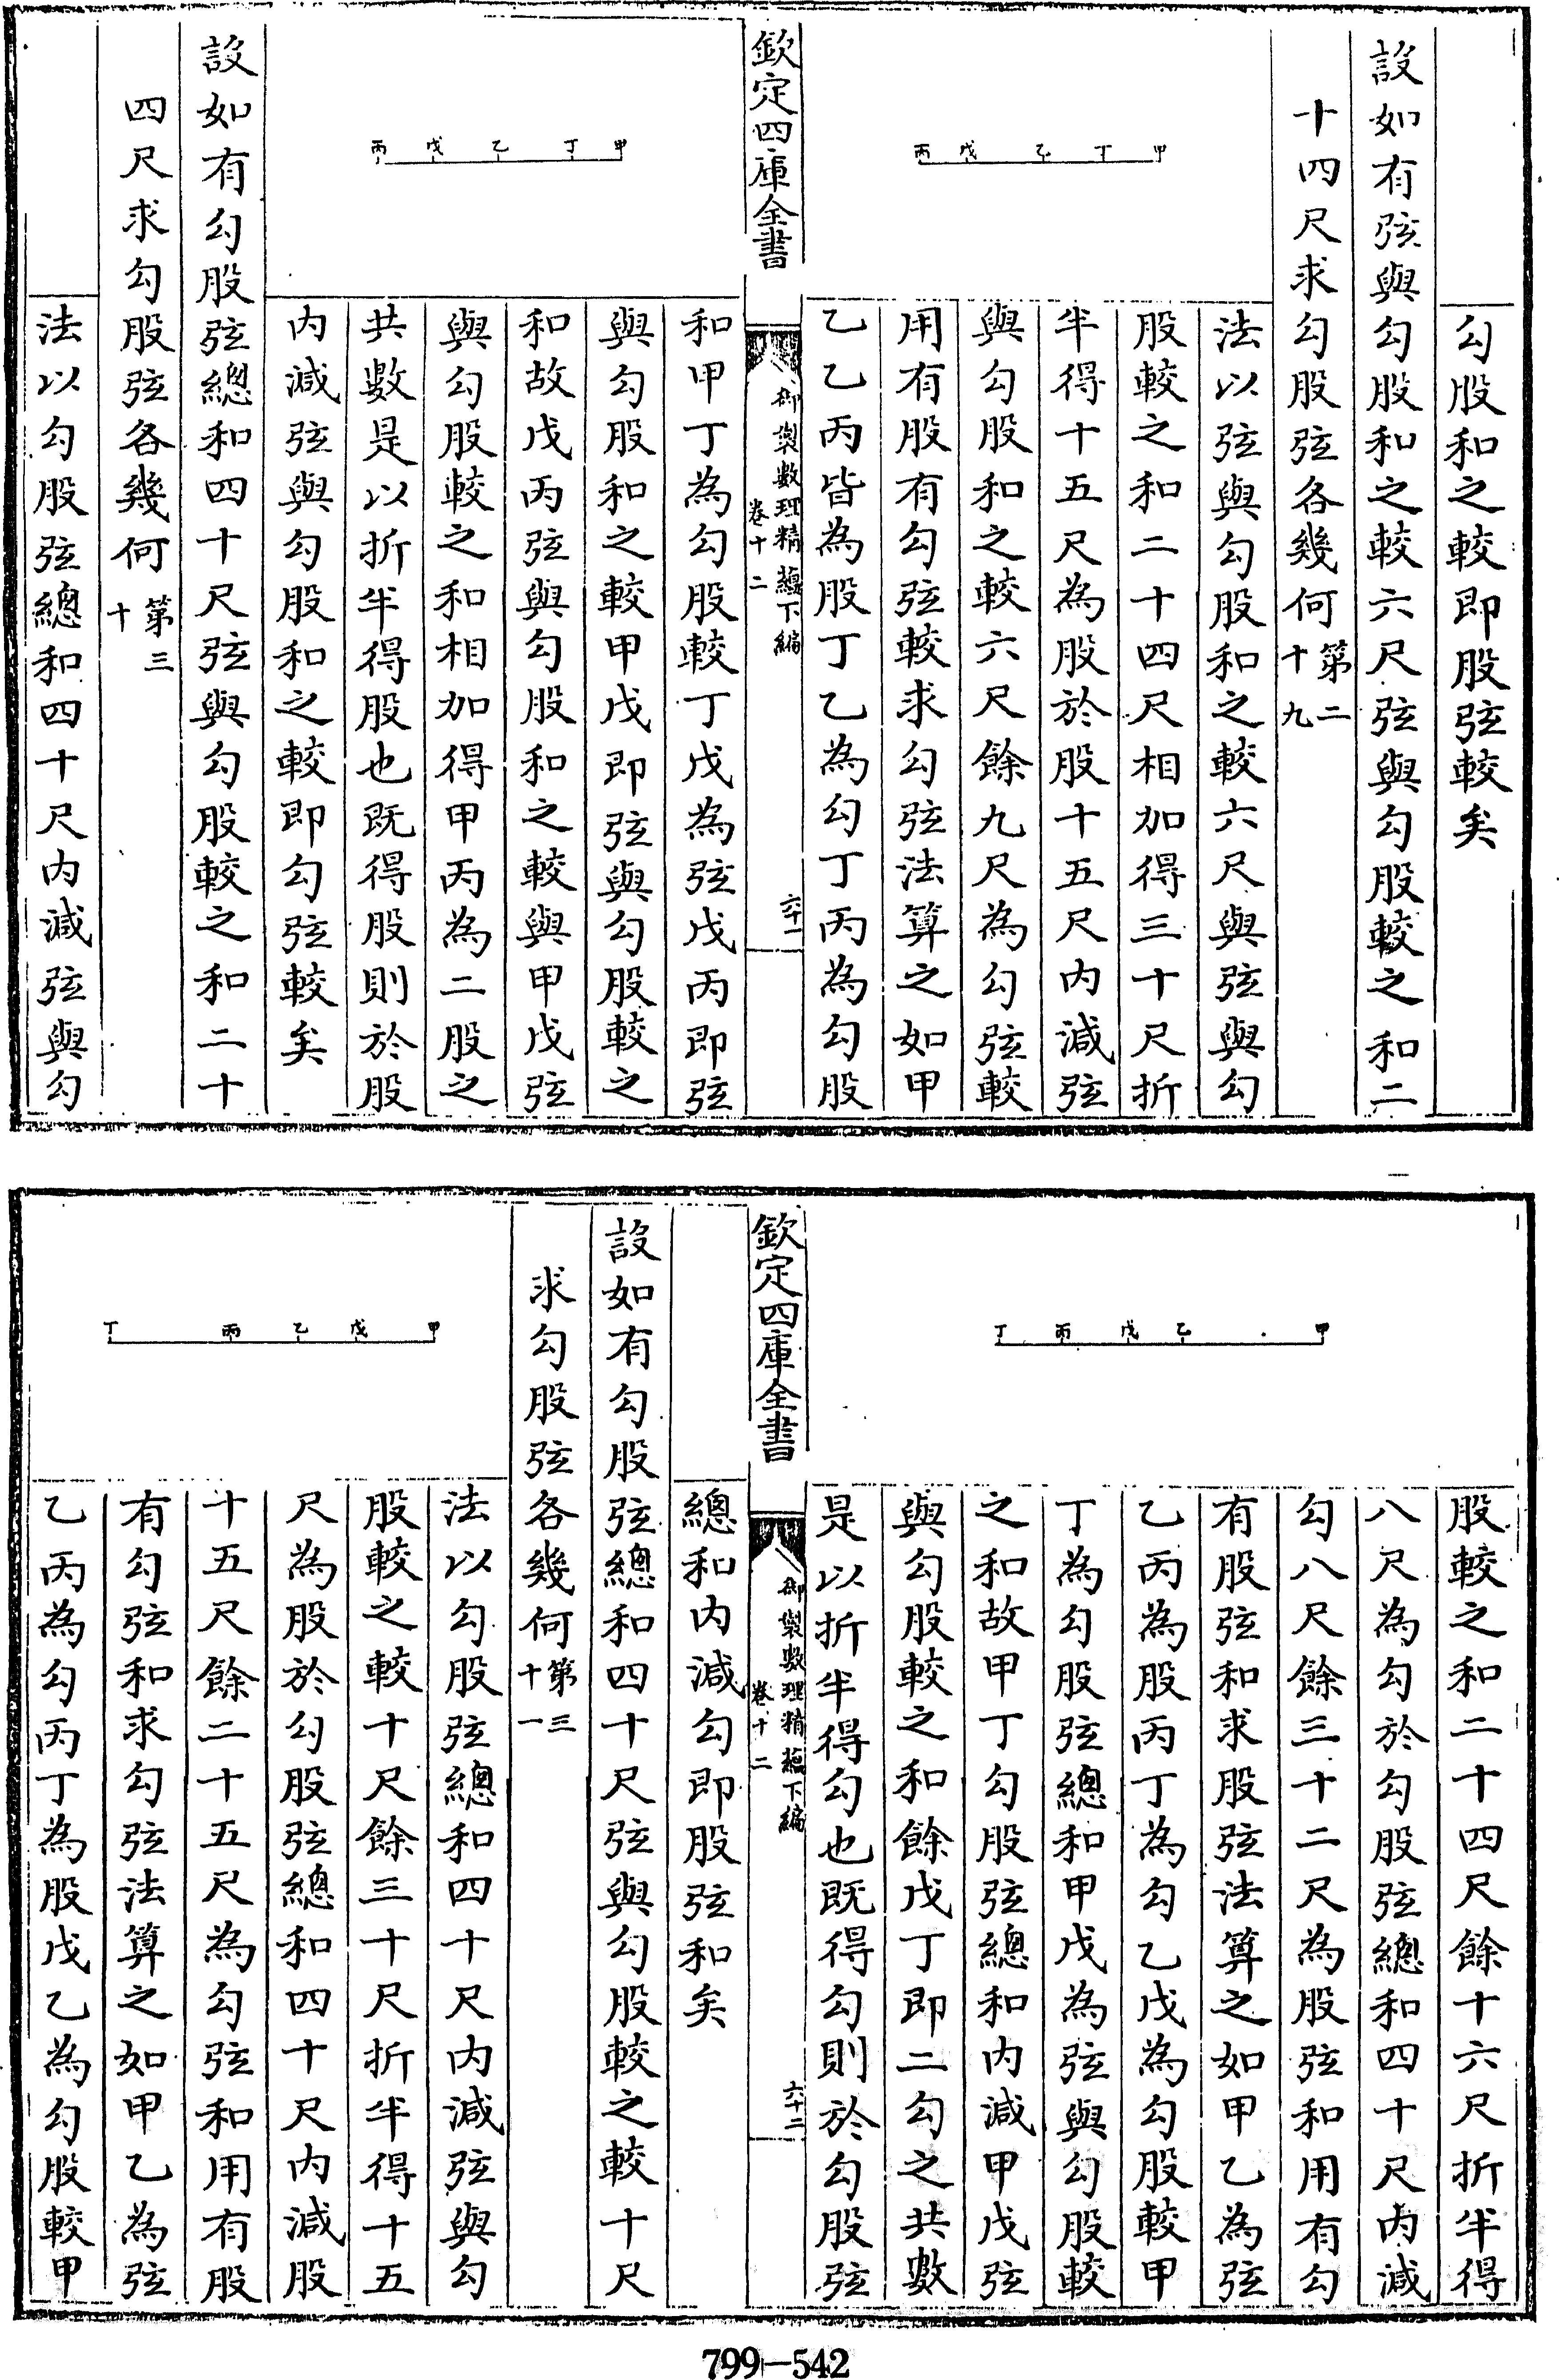 勾股和之較即股弦較矣
設如有弦與勾股和之較六尺弦與勾股較之和二
十四尺求勾股弦各幾何第二
十九
法以弦與勾股和之較六尺與弦與勾
股較之和二十四尺相加得三十尺折
半得十五尺為股於股十五尺内減弦
與勾股和之較六尺餘九尺為勾弦較
用有股有勾弦較求勾弦法算之如甲
乙乙丙皆為股丁乙為勾丁丙為勾股
甲丁乙戊丙
欽定四庫全書
御製數理精蘊下編
卷十二
六十一
和甲丁為勾股較丁戊為弦戊丙即弦
與勾股和之較甲戊即弦與勾股較之
和故戊丙弦與勾股和之較與甲戊弦
與勾股較之和相加得甲丙為二股之
共數是以折半得股也既得股則於股
内減弦與勾股和之較即勾弦較矣
甲丁乙戊丙
設如有勾股弦總和四十尺弦與勾股較之和二十
四尺求勾股弦各幾何第三
十
法以勾股弦總和四十尺内減弦與勾
股較之和二十四尺餘十六尺折半得
八尺為勾於勾股弦總和四十尺内減
勾八尺餘三十二尺為股弦和用有勾
有股弦和求股弦法算之如甲乙為弦
乙丙為股丙丁為勾乙戊為勾股較甲
丁為勾股弦總和甲戊為弦與勾股較
之和故甲丁勾股弦總和内減甲戊弦
與勾股較之和餘戊丁即二勾之共數
是以折半得勾也既得勾則於勾股弦
甲乙戊丙丁
欽定四庫全書
御製數理精蘊下編
卷十二
六十二
總和内減勾即股弦和矣
設如有勾股弦總和四十尺弦與勾股較之較十尺
求勾股弦各幾何第三
十一
法以勾股弦總和四十尺内減弦與勾
股較之較十尺餘三十尺折半得十五
尺為股於勾股弦總和四十尺内減股
十五尺餘二十五尺為勾弦和用有股
有勾弦和求勾弦法算之如甲乙為弦
乙丙為勾丙丁為股戊乙為勾股較甲
甲戊乙丙丁
799-542